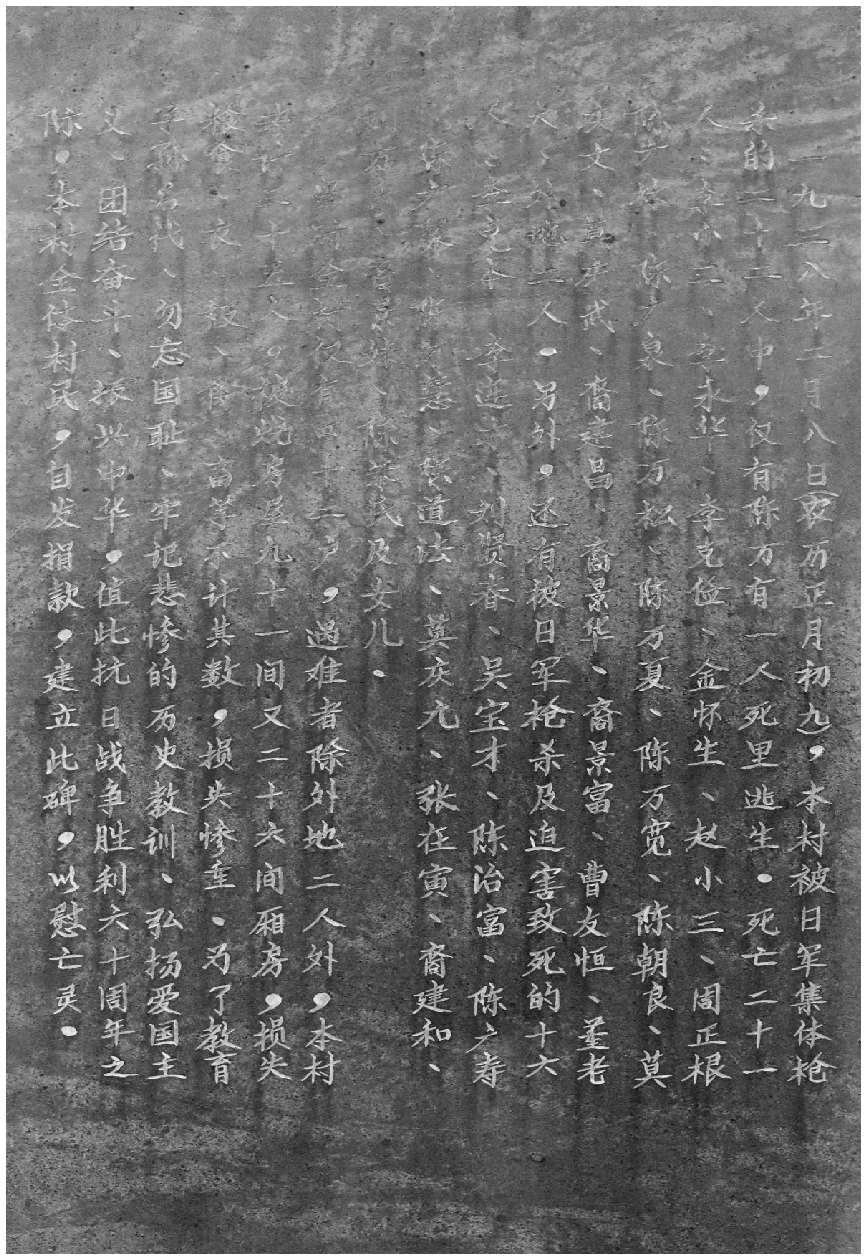 一九三八年二月八日（农历正月初九），本村被日军集体枪
杀的二十二人中，仅有陈万有一人死里逃生。死亡二十一
人、李小二、永华、李克俭、金怀生、赵小三、周正根
陈广泉、陈万松、陈万夏、陈万宽、陈朝良、莫
庆文、武、裔建昌、裔景华、裔景富、曹友恒、董老
大、外地二人。另外，还有被日军枪杀及迫害致死的十六
人、李克本、李进、刘贤春、吴宝才、陈治富、陈广寿
陈广、张道法、莫庆九、张在寅、裔建和、
裔景、陈宋氏及女儿、
当时全村仅有四十二户，遇难者除外地二人外，本村
共计三十五人。被烧房屋九十一间又二十六间厢房，损失
粮食、衣被、高草不计其数，损失惨重、为了教育
子孙后代、勿忘国耻、牢记悲惨的历史教训、弘扬爱国主
义、团结奋斗、振兴中华。值此抗日战争胜利六十周年之
际，本村全体村民，自发捐款，建立此碑，以慰亡灵。